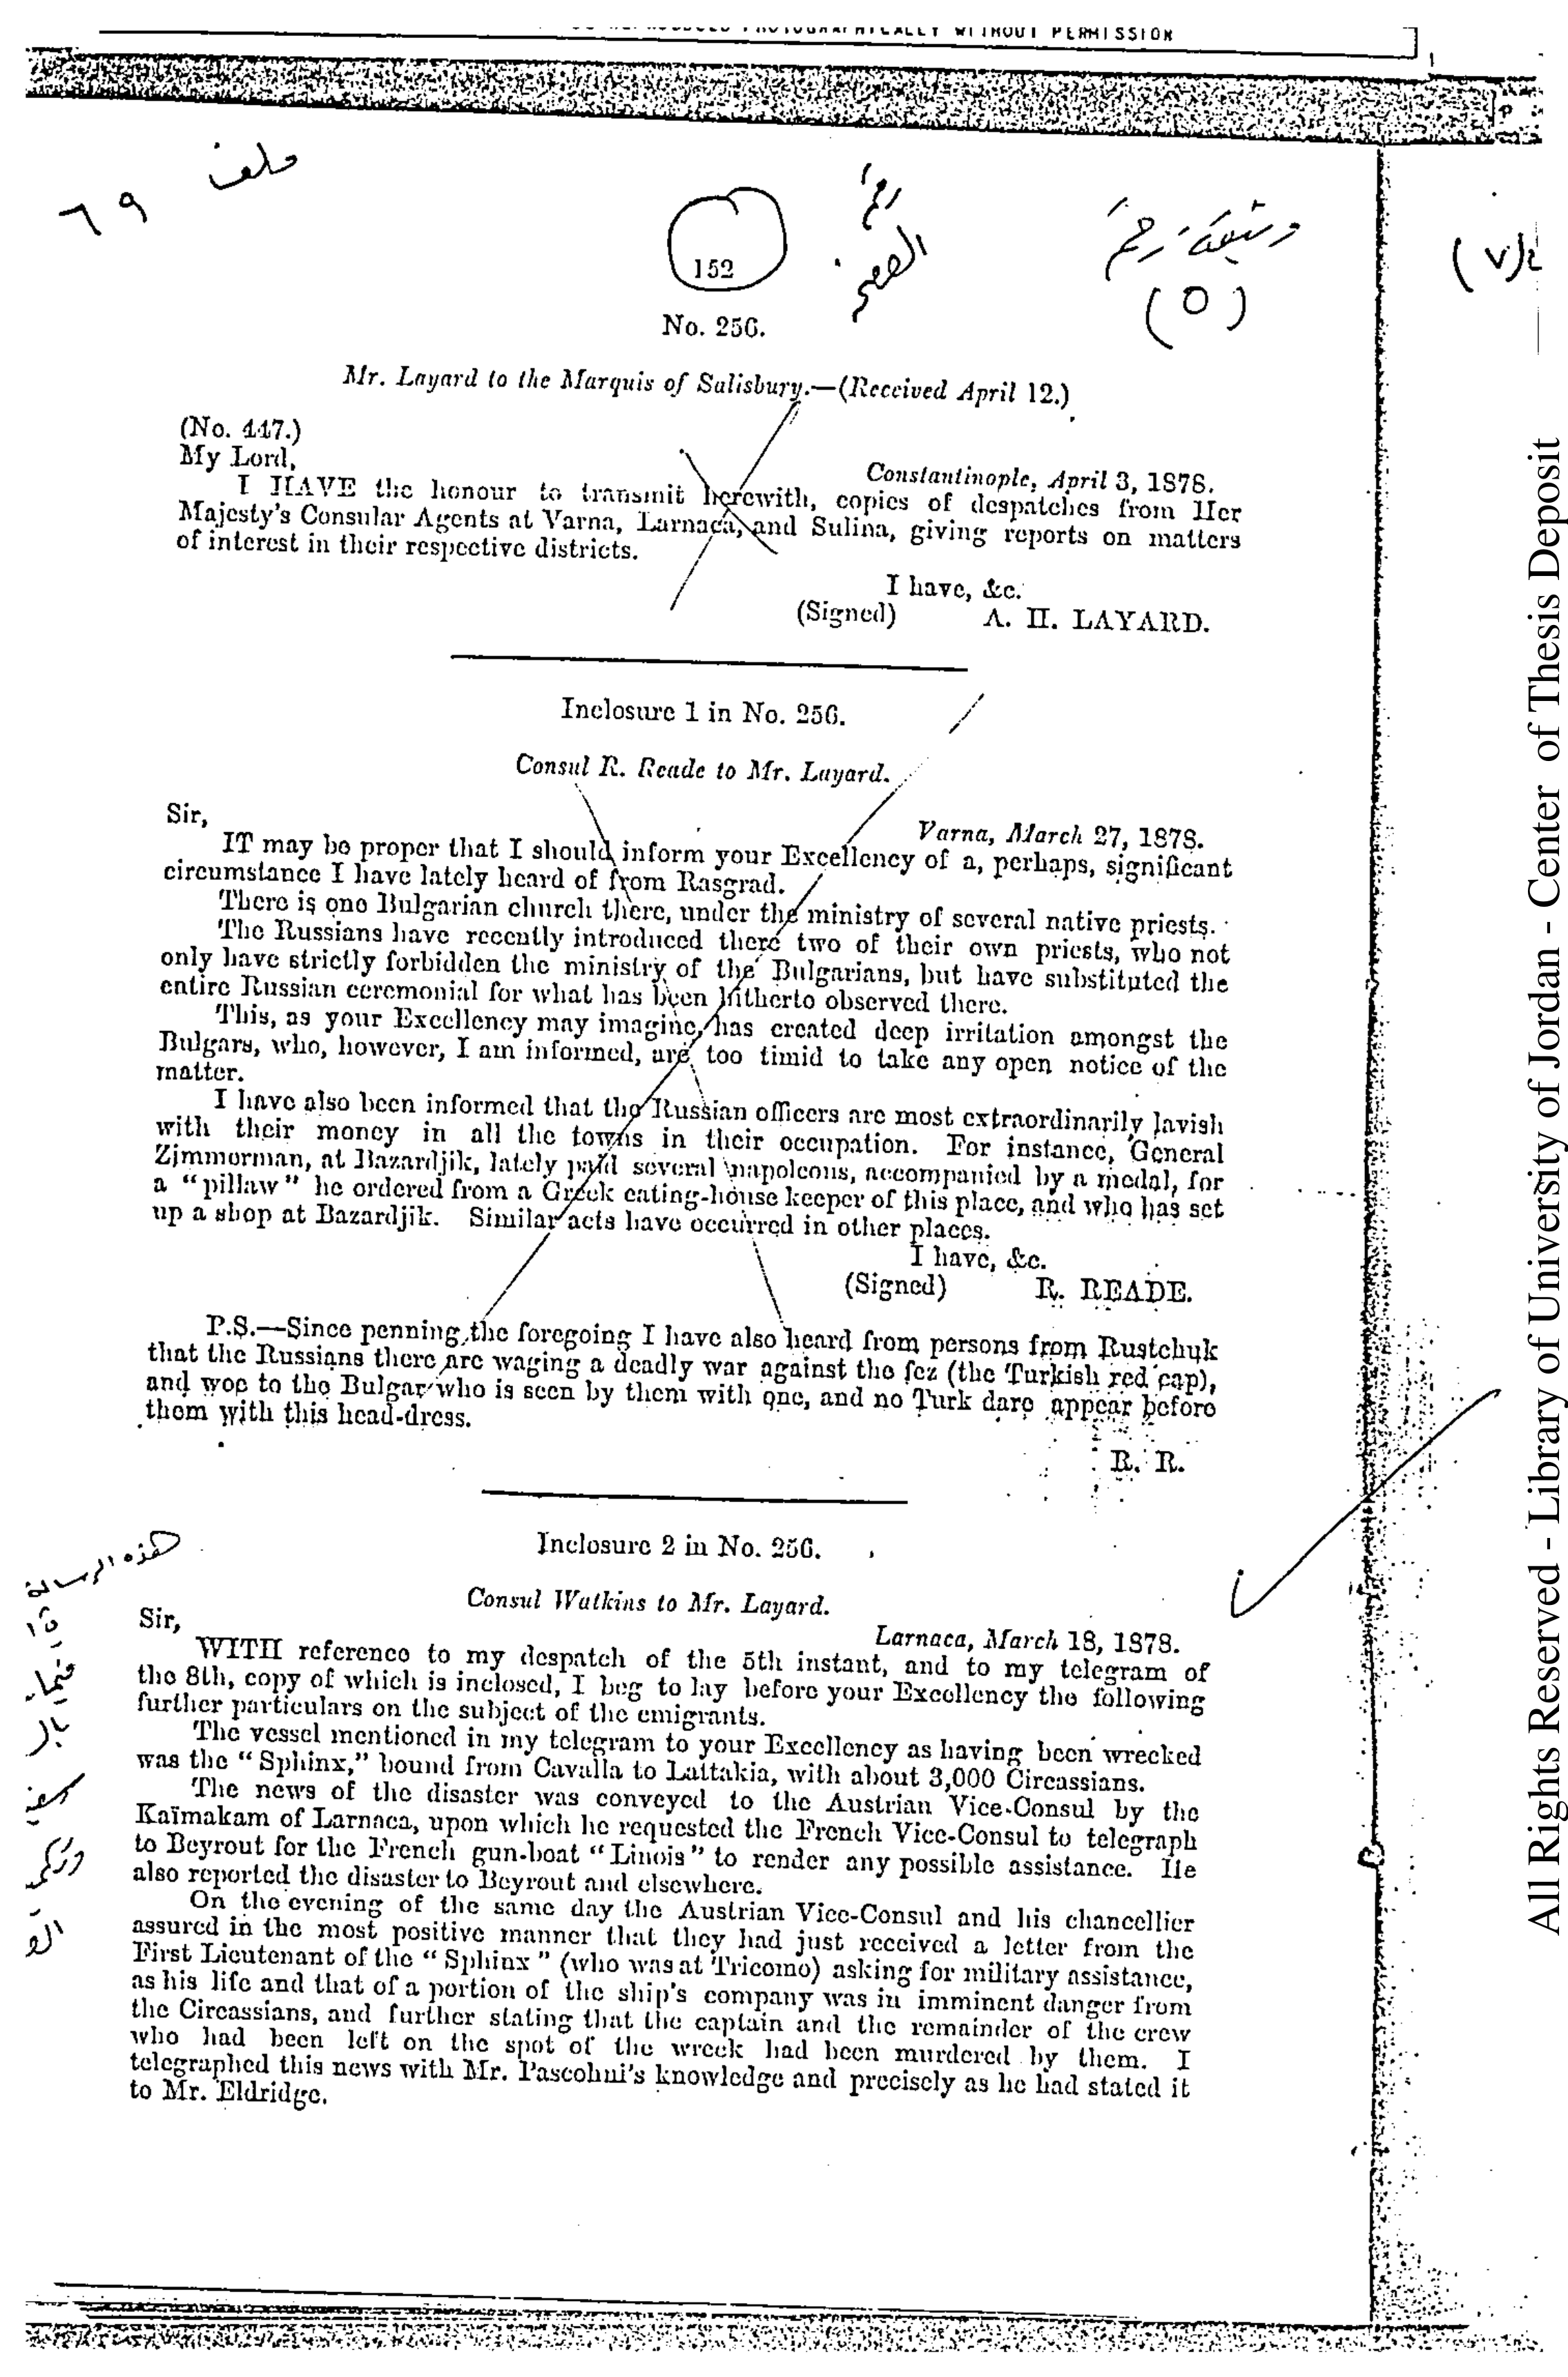 PHOTOGRAPHICALLY WITHOUT PERMISSION
ملف
٦٩
152
رقم
الصفحة
وثيقة رقم
(٥)
(٧)
No. 256.
Mr. Layard to the Marquis of Salisbury.—(Received April 12.)
(No. 447.)
My Lord,
Constantinople, April 3, 1878.
I HAVE the honour to transmit herewith, copies of despatches from Her
Majesty's Consular Agents at Varna, Larnaca, and Sulina, giving reports on matters
of interest in their respective districts.
I have, &c.
(Signed) A. H. LAYARD.
Inclosure 1 in No. 256.
Consul R. Reade to Mr. Layard.
Sir,
Varna, March 27, 1878.
IT may be proper that I should inform your Excellency of a, perhaps, significant
circumstance I have lately heard of from Rasgrad.
There is one Bulgarian church there, under the ministry of several native priests.
The Russians have recently introduced there two of their own priests, who not
only have strictly forbidden the ministry of the Bulgarians, but have substituted the
entire Russian ceremonial for what has been hitherto observed there.
This, as your Excellency may imagine, has created deep irritation amongst the
Bulgars, who, however, I am informed, are too timid to take any open notice of the
matter.
I have also been informed that the Russian officers are most extraordinarily lavish
with their money in all the towns in their occupation. For instance, General
Zimmerman, at Bazardjik, lately paid several napoleons, accompanied by a medal, for
a "pillaw" he ordered from a Greek eating-house keeper of this place, and who has set
up a shop at Bazardjik. Similar acts have occurred in other places.
I have, &c.
(Signed) R. READE.
P.S.—Since penning the foregoing I have also heard from persons from Rustchuk
that the Russians there are waging a deadly war against the fez (the Turkish red cap),
and woe to the Bulgar who is seen by them with one, and no Turk dare appear before
them with this head-dress.
R. R.
هذه الرسالة
Inclosure 2 in No. 256.
Consul Watkins to Mr. Layard.
Sir,
Larnaca, March 18, 1878.
WITH reference to my despatch of the 5th instant, and to my telegram of
the 8th, copy of which is inclosed, I beg to lay before your Excellency the following
further particulars on the subject of the emigrants.
The vessel mentioned in my telegram to your Excellency as having been wrecked
was the "Sphinx," bound from Cavalla to Lattakia, with about 3,000 Circassians.
The news of the disaster was conveyed to the Austrian Vice-Consul by the
Kaïmakam of Larnaca, upon which he requested the French Vice-Consul to telegraph
to Beyrout for the French gun-boat "Linois" to render any possible assistance. He
also reported the disaster to Beyrout and elsewhere.
On the evening of the same day the Austrian Vice-Consul and his chancellier
assured in the most positive manner that they had just received a letter from the
First Lieutenant of the "Sphinx" (who was at Tricomo) asking for military assistance,
as his life and that of a portion of the ship's company was in imminent danger from
the Circassians, and further stating that the captain and the remainder of the crew
who had been left on the spot of the wreck had been murdered by them. I
telegraphed this news with Mr. Pascohni's knowledge and precisely as he had stated it
to Mr. Eldridge.
All Rights Reserved - Library of University of Jordan - Center of Thesis Deposit